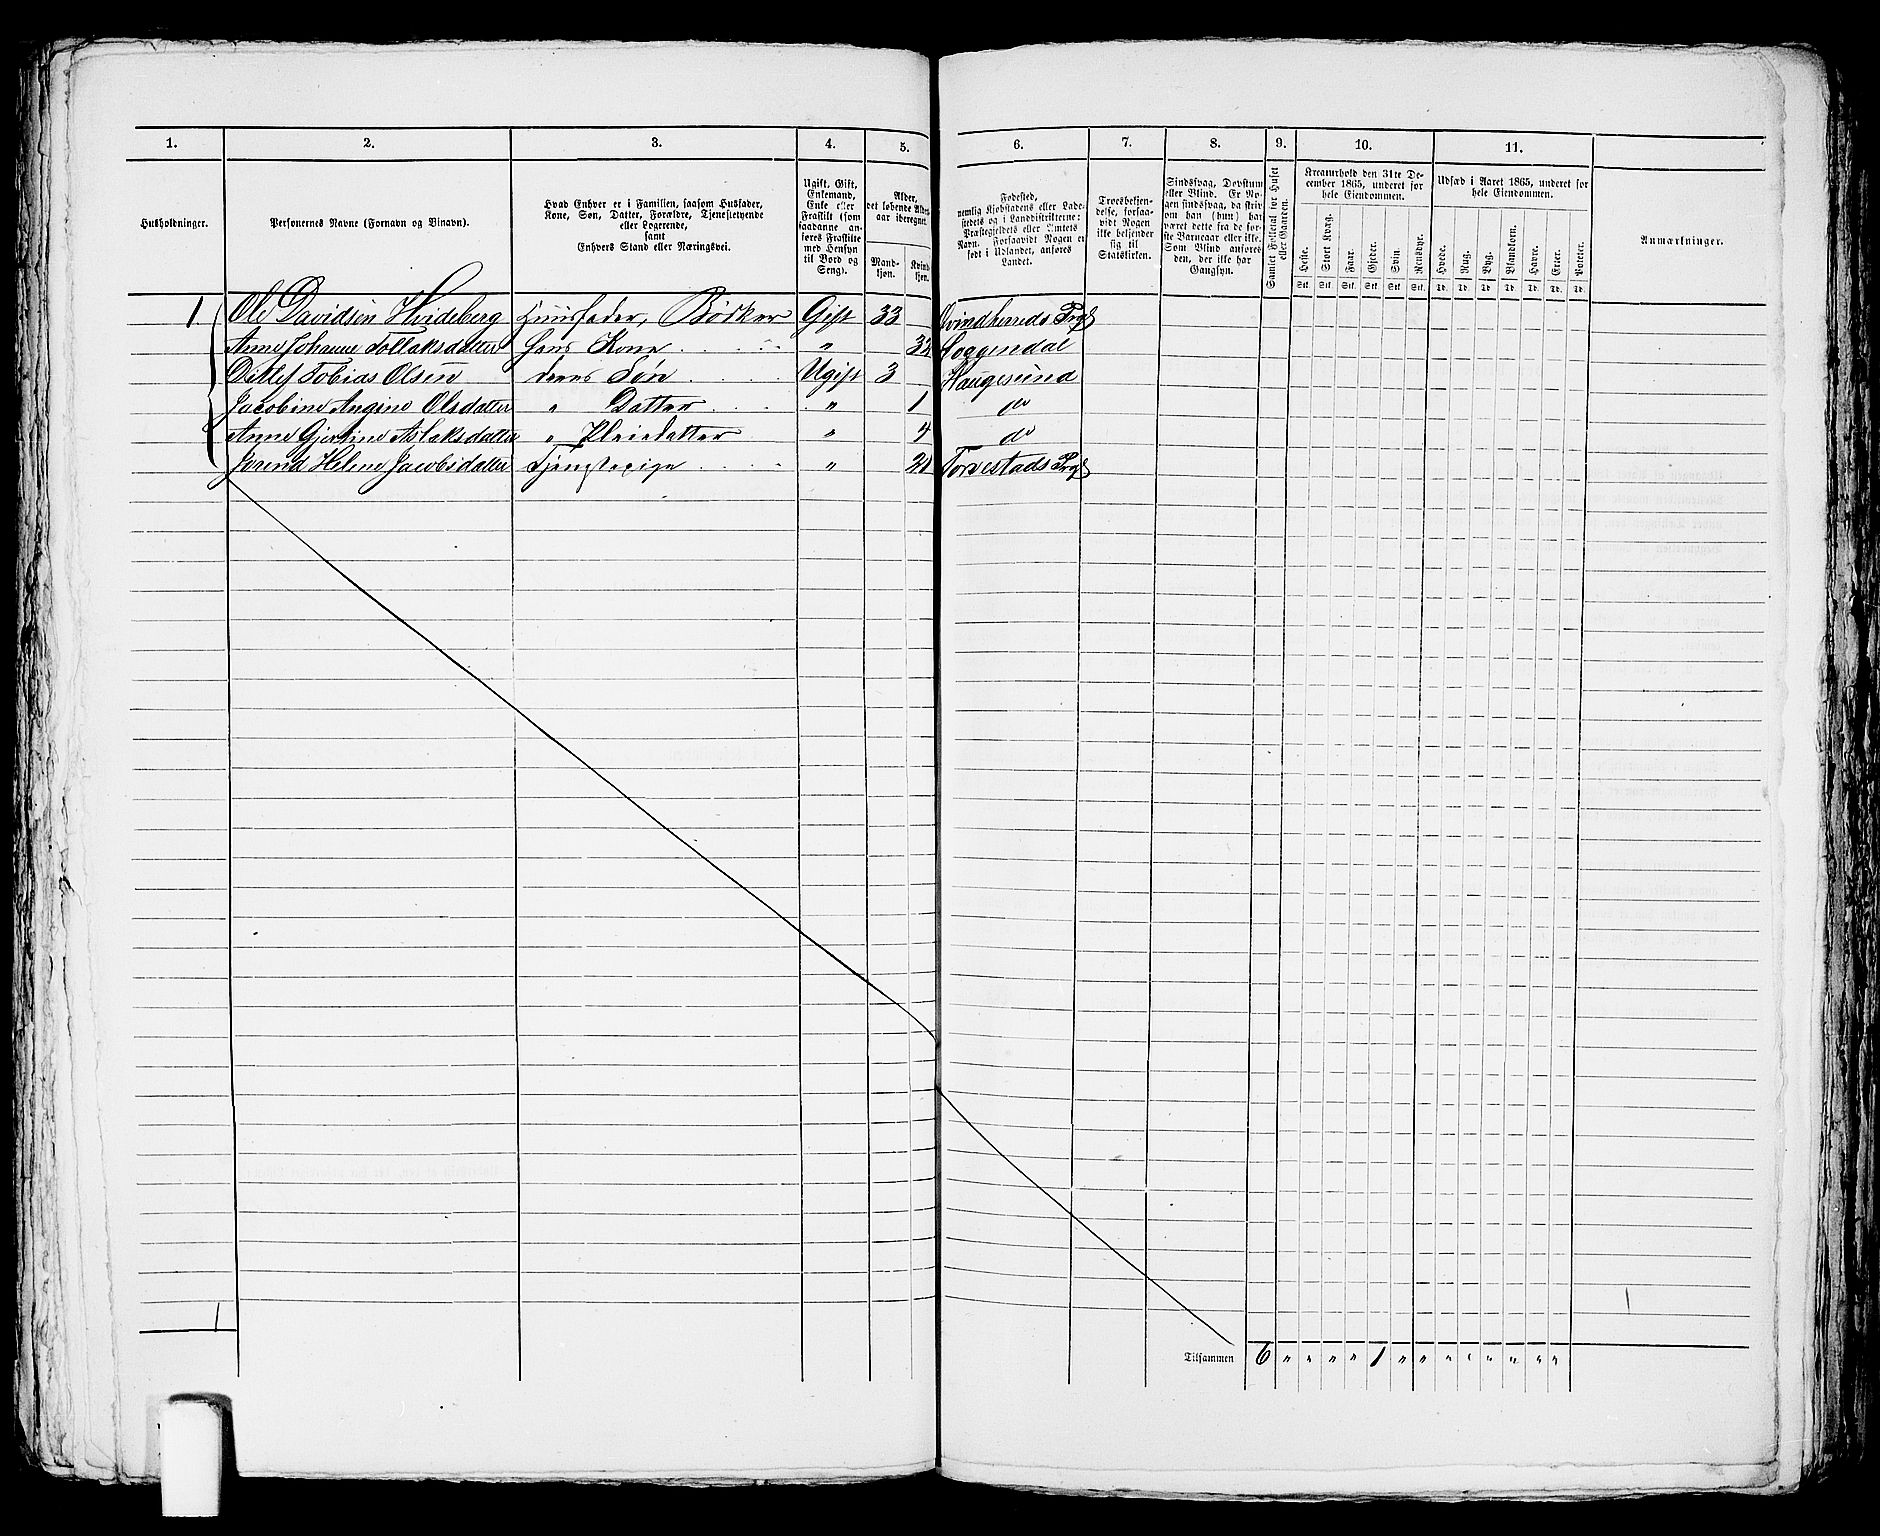 1. 2. 3. 4. 5. 6. 7. 8. 9. 10. 11.
Husholdninger.
Personernes Navne (Fornavn og Binavn).
Hvad Enhver er i Familien, saasom Husfader,
Kone, Søn, Datter, Forældre, Tjenestetyende
eller Logerende,
samt
Enhvers Stand eller Næringsvei.
Ugift, Gift,
Enkemand,
Enke eller
Fraskilt (som
saadanne an-
føres Fraskilte
med Hensyn
til Bord og
Seng).
Alder,
det løbende Alders-
aar iberegnet.
Mand-
kjøn.
Kvind-
kjøn.
Fødested,
nemlig Kjøbstadens eller Lade-
stedets og i Landdistrikterne:
Præstegjeldets eller Amtets
Navn. Forsaavidt Nogen er
født i Udlandet, anføres
Landet.
Troesbekjen-
delse, forsaa-
vidt Nogen
ikke bekjender
sig til
Statskirken.
Sindssvag, Døvstum
eller Blind. Er No-
gen sindssvag, da skriv
om han (hun) har
været dette fra de før-
ste Barneaar eller ikke.
Som Blind anføres
den, der ikke har
Gangsyn.
Samlet Folketal for Huset
eller Gaarden.
Kreaturhold den 31te De-
cember 1865, underet for
hele Eiendommen.
Heste. Stort Kvæg. Faar. Gjeder. Svin. Rensdyr.
Stk. Stk. Stk. Stk. Stk. Stk.
Udsæd i Aaret 1865, underet for
hele Eiendommen.
Hvede. Rug. Byg. Blandkorn. Havre. Erter. Poteter.
Td. Td. Td. Td. Td. Td. Td.
Anmærkninger.
1. Ole Davidsen Hvideberg Huusfader, Bødker Gift 33 Qvindherreds Prgj
Anne Johanne Tollaksdatter hans Kone " 32 Soggendal
Ditlef Tobias Olsen deres Søn Ugift 3 Haugesund
Jacobine Angine Olsdatter " Datter " 1 do
Anne Gjertine Aslaksdatter " Pleiedatter " 4 do
Jorend Helene Jacobsdatter Tjenestepige " 21 Torvestads Prgj
1
Tilsammen 6 " " " " 1 " " " " " " " "